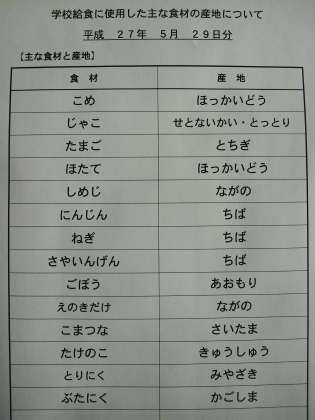 学校給食に使用した主な食材の産地について
平成 27年 5月 29日分
【主な食材と産地】
食 材 産 地
こめ ほっかいどう
じゃこ せとないかい・とっとり
たまご とちぎ
ほたて ほっかいどう
しめじ ながの
にんじん ちば
ねぎ ちば
さやいんげん ちば
ごぼう あおもり
えのきだけ ながの
こまつな さいたま
たけのこ きゅうしゅう
とりにく みやざき
ぶたにく かごしま